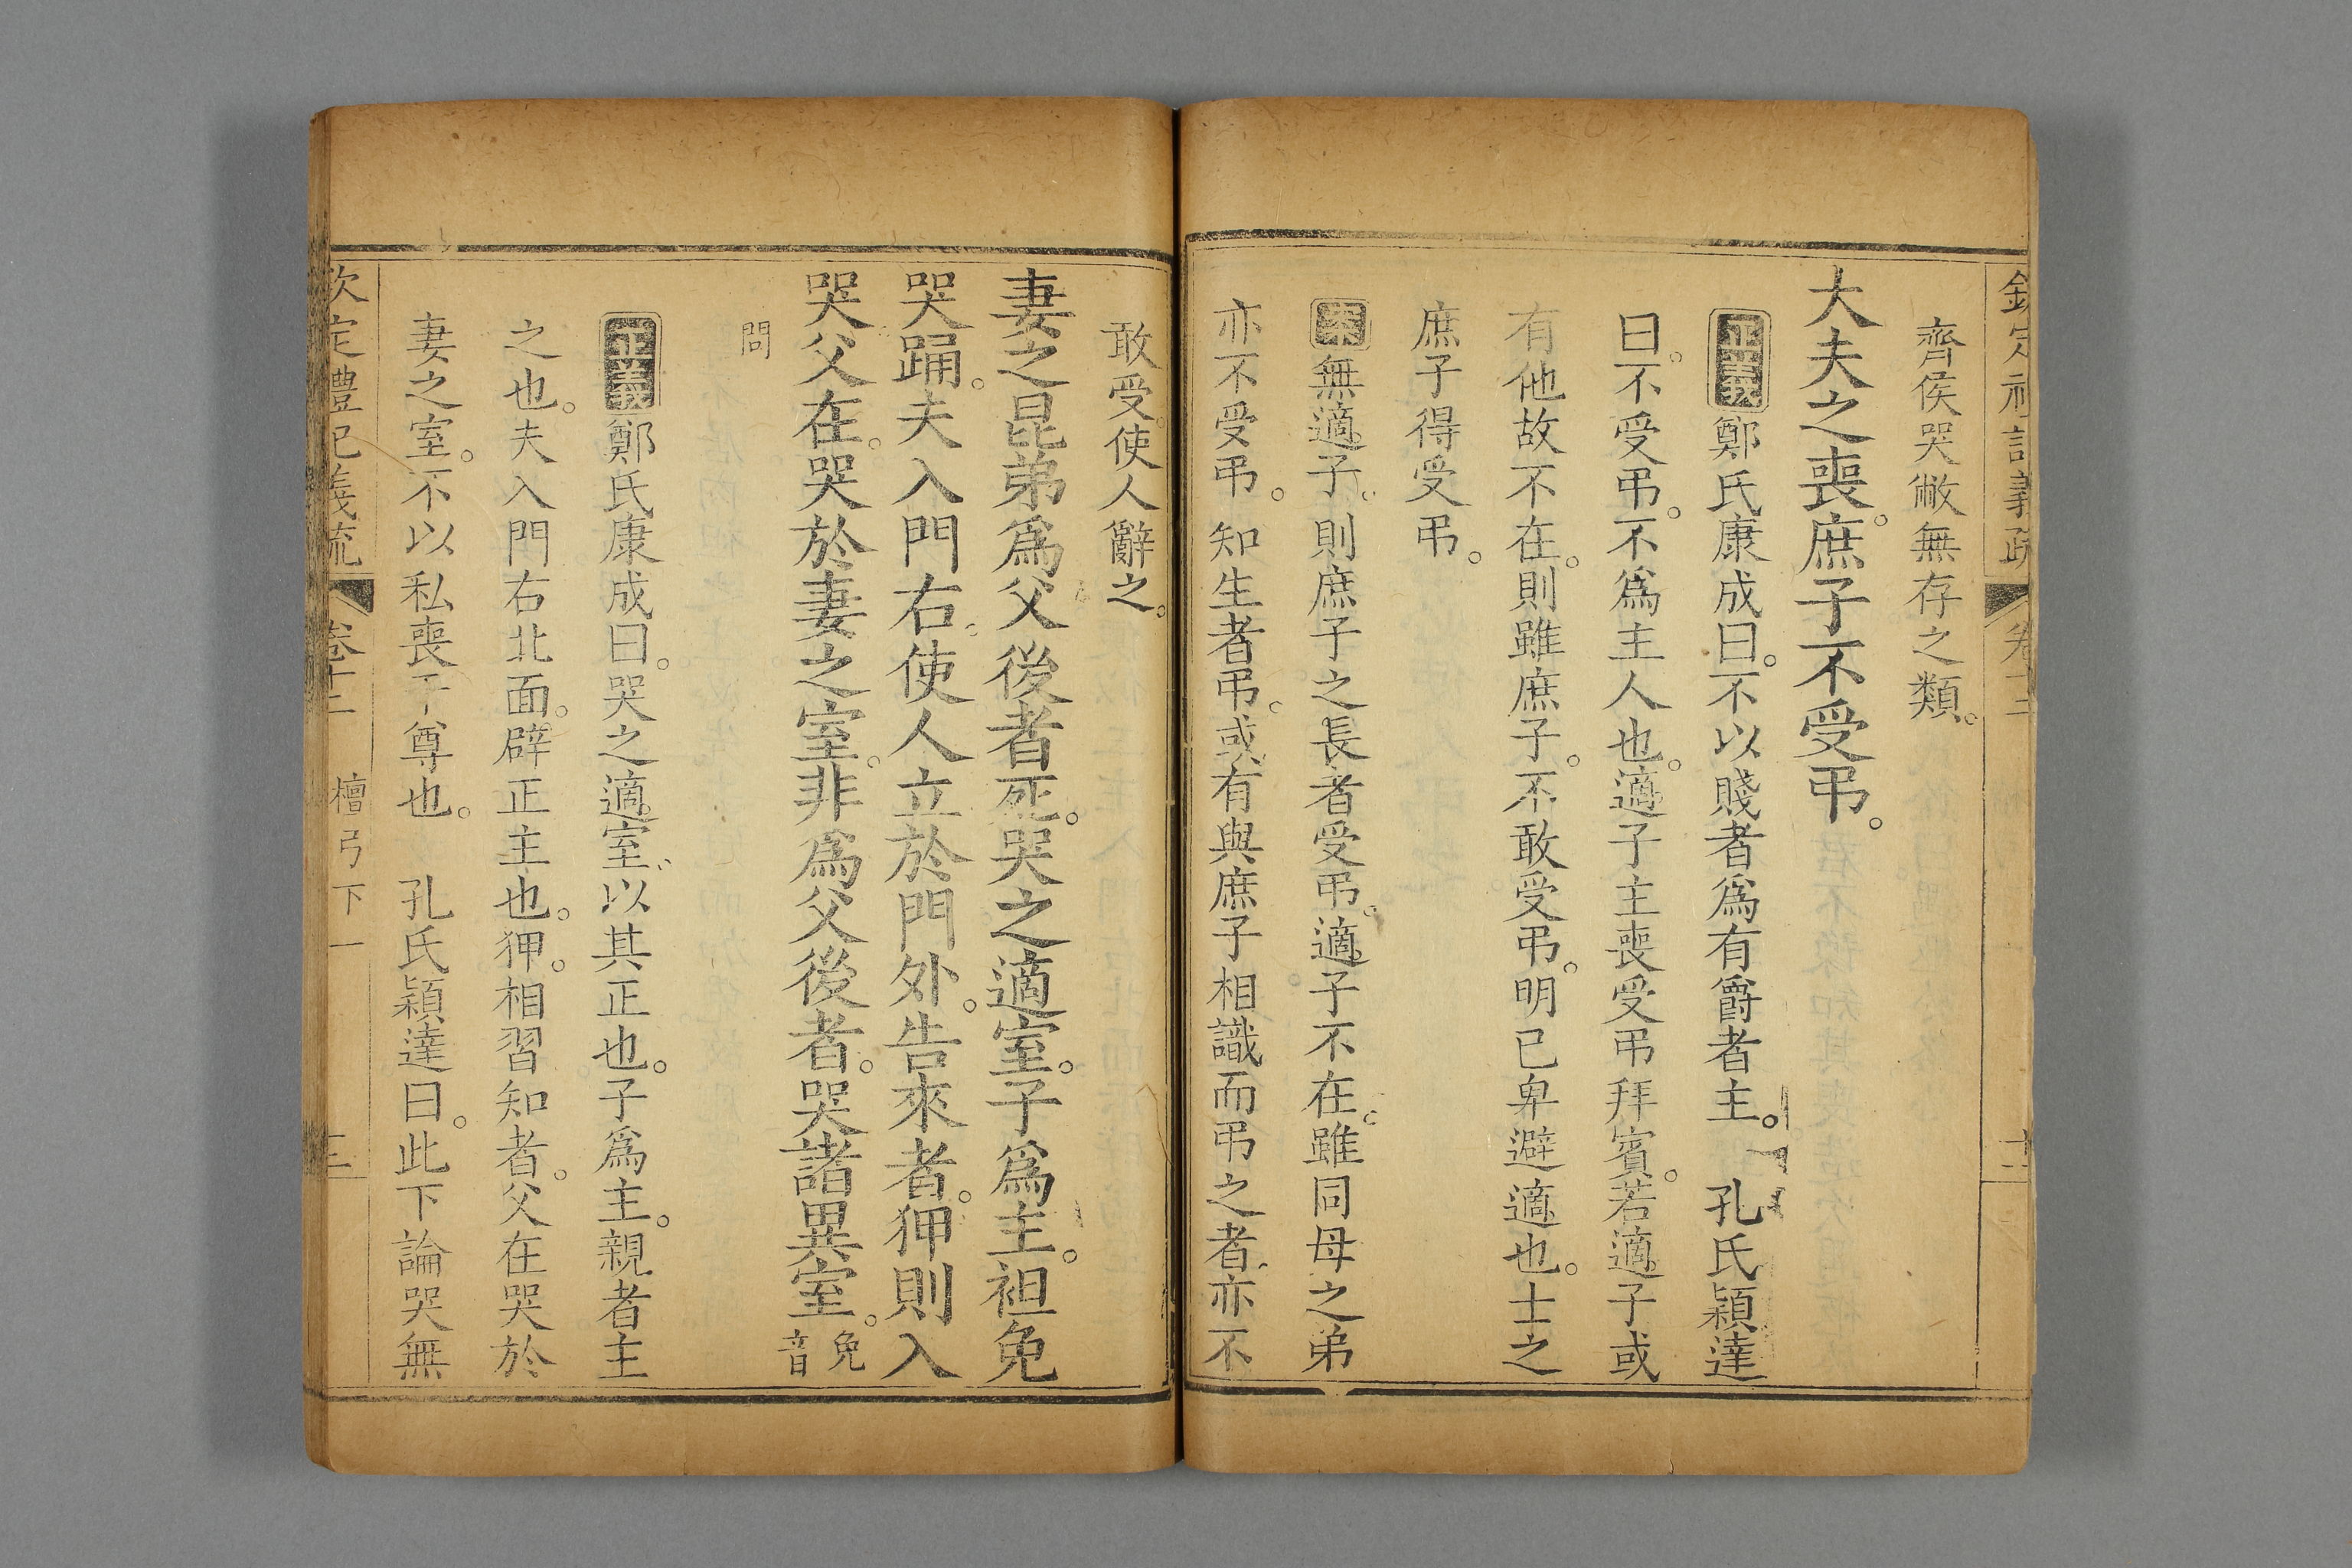 欽定禮記義疏 卷十二
齊侯哭敝無存之類。
大夫之喪。庶子不受弔。
正義鄭氏康成曰。不以賤者爲有爵者主。孔氏穎達
曰。不受弔。不爲主人也。適子主喪受弔拜賓。若適子或
有他故不在。則雖庶子。不敢受弔。明已卑避適也。士之
庶子得受弔。
案無適子。則庶子之長者受弔。適子不在。雖同母之弟
亦不受弔。知生者弔。或有與庶子相識而弔之者。亦不
敢受。使人辭之。
妻之昆弟爲父後者死。哭之適室。子爲主。袒免
哭踊。夫入門右。使人立於門外。告來者。狎則入
哭父在。哭於妻之室。非爲父後者。哭諸異室。免音
問
正義鄭氏康成曰。哭之適室。以其正也。子爲主。親者主
之也。夫入門右北面。辟正主也。狎。相習知者。父在哭於
妻之室。不以私喪干尊也。孔氏穎達曰。此下論哭無
欽定禮記義疏 卷十二 檀弓下一